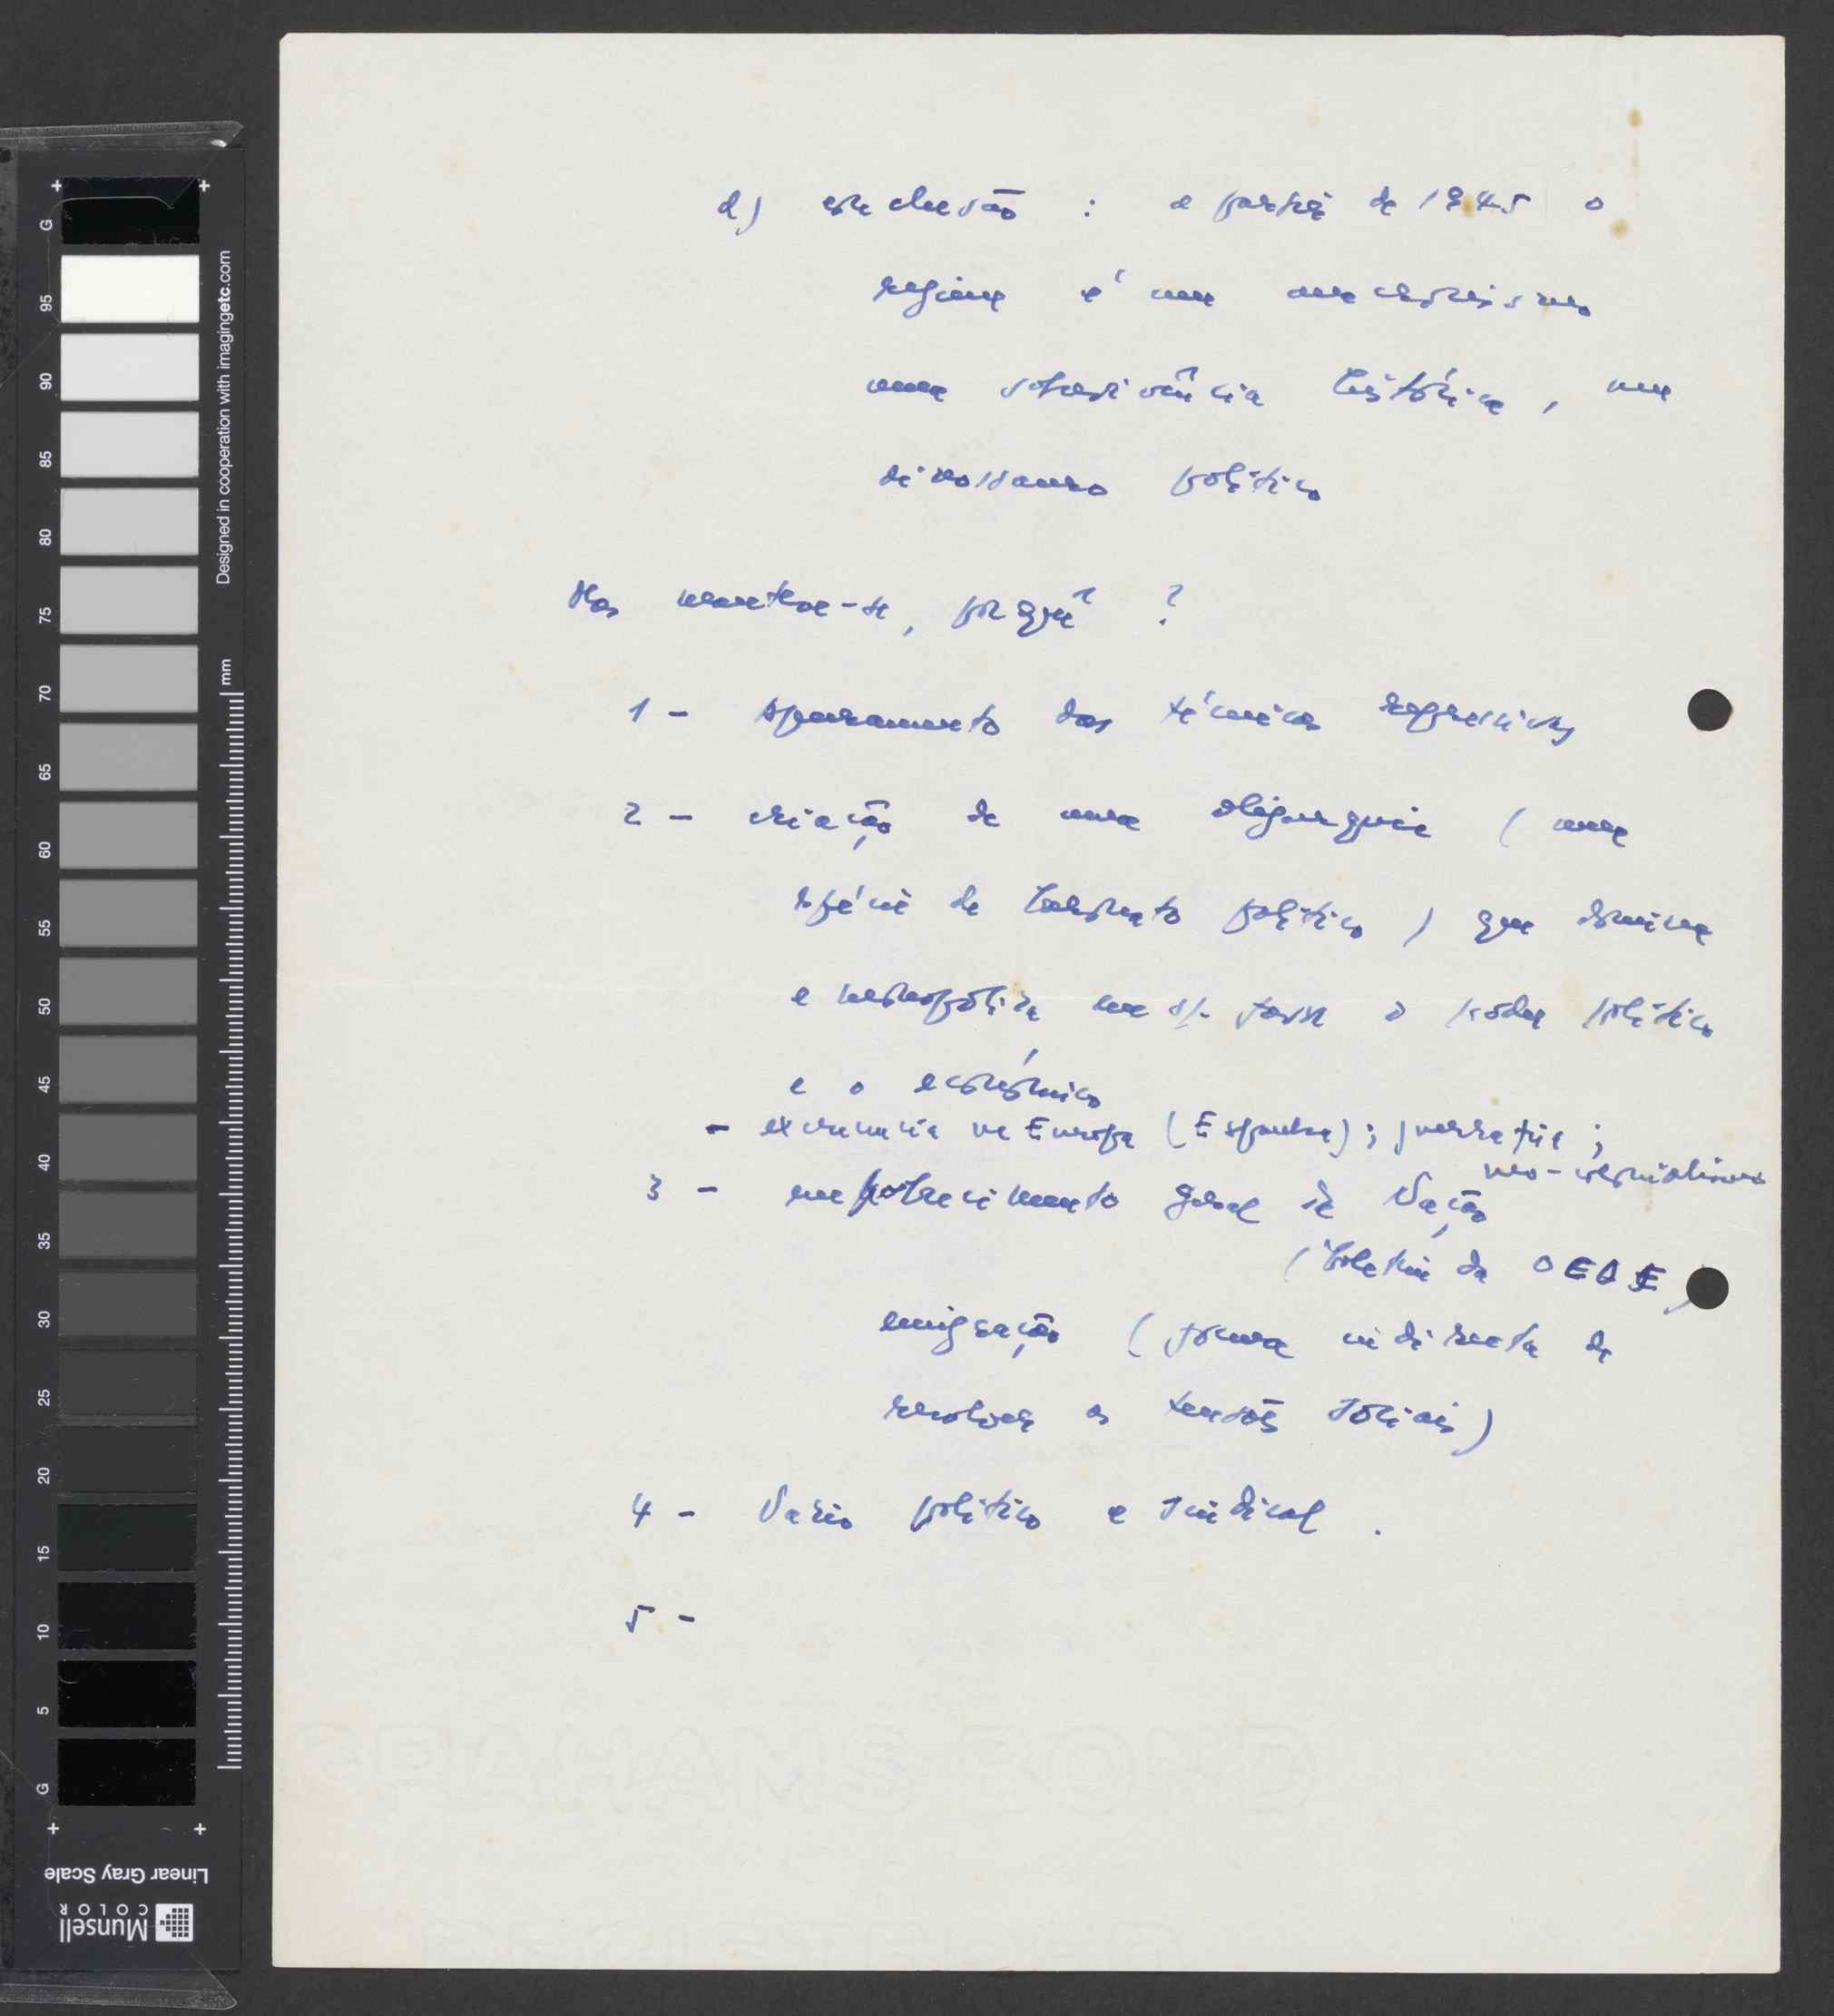 d) conclusão : a partir de 1945 o
regime é um anacronismo
uma sobrevivência histórica, um
dinossauro político
Mas mantem-se, porquê ?
1 - apuramento das técnicas repressivas
2 - criação de uma oligarquia ( uma
espécie de baronato político ) que domina
e monopoliza em s/ favor o poder político
e o económico
- na Europa ( Espanha ) ; guerra fria ;
neo-colonialismo
3 - empobrecimento geral da Nação
( boletim da OCDE )
emigração ( forma indirecta de
resolver as tensões sociais )
4 - Vazio político e sindical .
5 -
SPAHAMS BOND
G 95 90 85 80 75 70 65 60 55 50 45 40 35 30 25 20 15 10 5 G
Designed in cooperation with imagingetc.com
mm
Linear Gray Scale
Munsell
COLOR